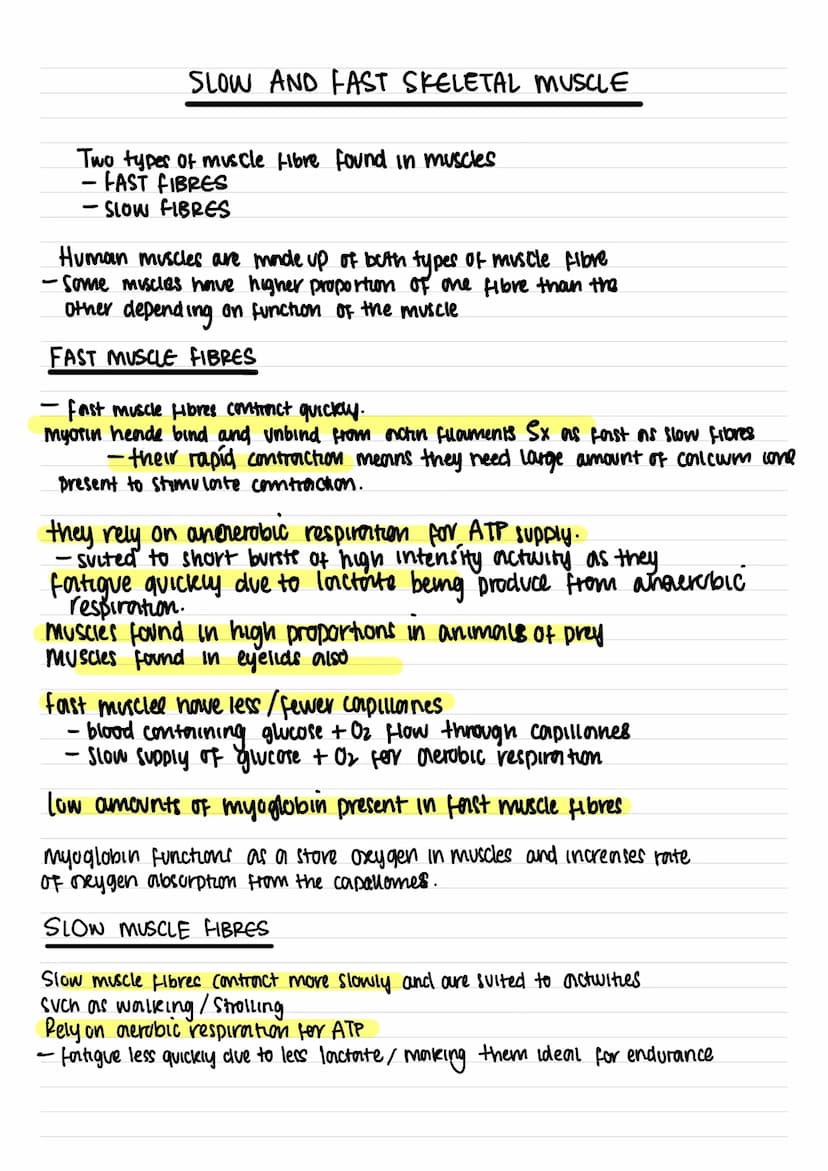 SLOW AND FAST SKELETAL MUSCLE
Two types of muscle fibre found in muscles
- FAST FIBRES
- SLOW FIBRES
Human muscles are made up of both types of muscle fibre
- Some muscles have higher proportion of one fibre than the
other depending on function of the muscle
FAST MUSCLE FIBRES
- fast muscle fibres contract quickly.
myosin heads bind and unbind from actin filaments 5x as fast as slow fibres
- their rapid contraction means they need large amount of calcium ions
present to stimulate contraction.
they rely on anaerobic respiration for ATP supply.
- suited to short bursts of high intensity activity as they
fatigue quickly due to lactate being produce from anaerobic
respiration.
Muscles found in high proportions in animals of prey
Muscles found in eyelids also
fast muscles have less/fewer capillaries
- blood containing glucose + O2 flow through capillaries
- Slow supply of glucose + O2 for aerobic respiration
low amounts of myoglobin present in fast muscle fibres
myoglobin functions as a store oxygen in muscles and increases rate
of oxygen absorption from the capallaries.
SLOW MUSCLE FIBRES
Slow muscle fibres contract more slowly and are suited to activities
such as walking/strolling
Rely on aerobic respiration for ATP
- fatigue less quickly due to less lactate/making them ideal for endurance